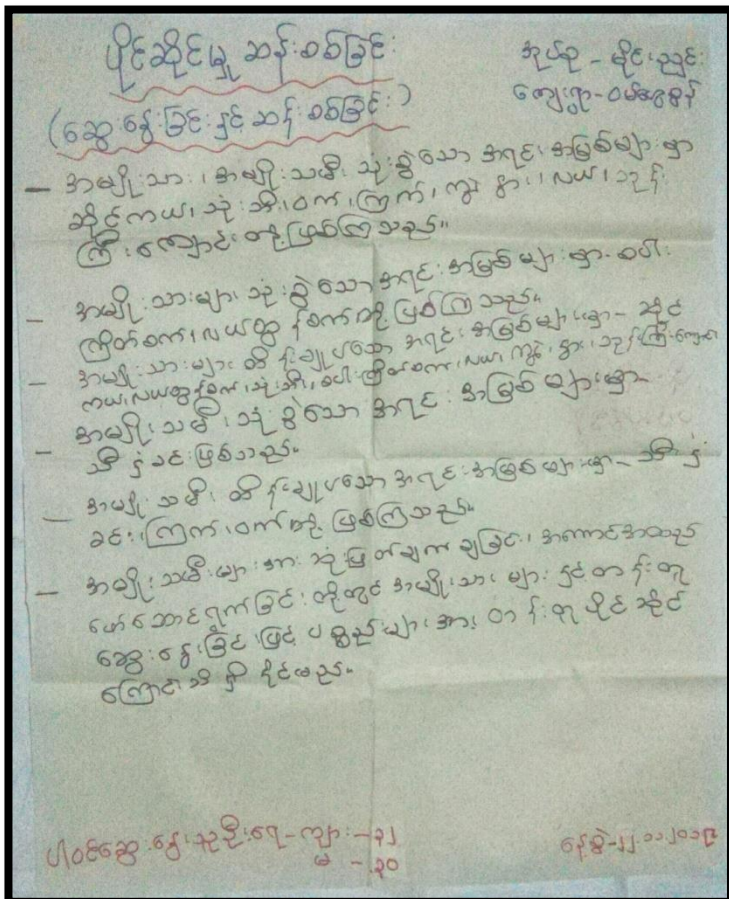 ပိုင်ဆိုင်မှု ဆန်းစစ်ခြင်း
(ဆွေးနွေးခြင်းနှင့် ဆန်းစစ်ခြင်း)
အုပ်စု - မိုင်းညှင်း
ကျေးရွာ -
– အမျိုးသား၊ အမျိုးသမီး သုံးစွဲသော အရင်းအမြစ်များမှာ
ဆိုင်ကယ်၊ သုံးဘီး၊ ဝက်၊ ကြက်၊ ကျွဲ၊ နွား၊ လယ်၊ ဘုန်း
ကြီးကျောင်းတို့ ဖြစ်ကြသည်။
– အမျိုးသားများ သုံးစွဲသော အရင်းအမြစ်များမှာ - စပါး
ကြိတ်စက်၊ လယ်ထွန်စက်တို့ ဖြစ်ကြသည်။
– အမျိုးသားများ ထိန်းချုပ်သော အရင်းအမြစ်များမှာ - ဆိုင်
ကယ်၊ လယ်ထွန်စက်၊ သုံးဘီး၊ စပါးကြိတ်စက်၊ လယ်၊ ကျွဲ၊ နွား၊ ဘုန်းကြီးကျောင်း
– အမျိုးသမီး သုံးစွဲသော အရင်းအမြစ်များမှာ
သီးနှံခင်းဖြစ်သည်။
– အမျိုးသမီး ထိန်းချုပ်သော အရင်းအမြစ်များမှာ - သီးနှံ
ခင်း၊ ကြက်၊ ဝက်တို့ ဖြစ်ကြသည်။
– အမျိုးသမီးများအား ဆုံးဖြတ်ချက်ချခြင်း၊ အကောင်အထည်
ဖော်ဆောင်ရွက်ခြင်းတို့တွင် အမျိုးသားများနှင့်တန်းတူ
ဆွေးနွေးခြင်းဖြင့် ပစ္စည်းများအား တန်းတူပိုင်ဆိုင်
ကြောင်းသိရှိနိုင်မည်။
ပါဝင်ဆွေးနွေးသူဦးရေ - ကျား - ၃၂
မ - ၃၀
နေ့စွဲ -